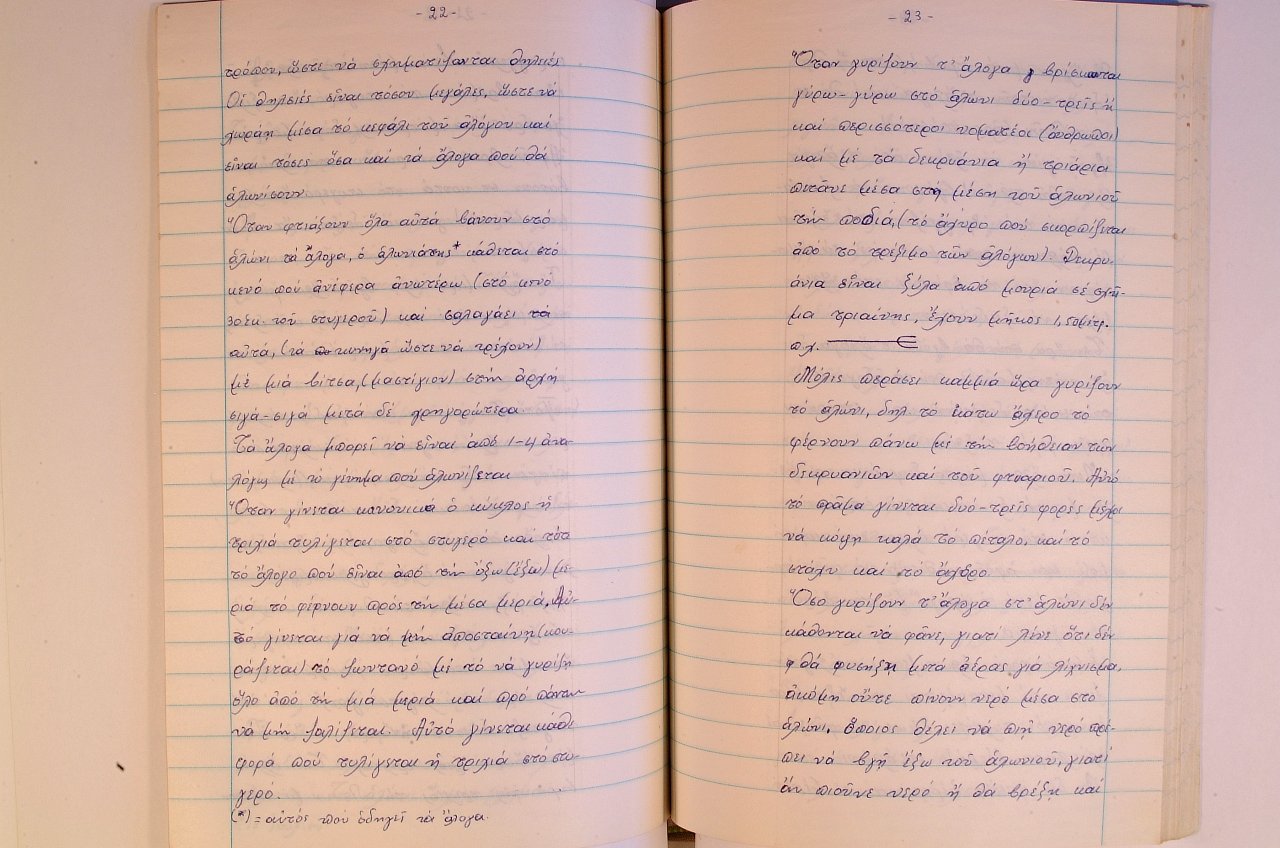 -22-
τρόπον, ὥστε νά σχηματίζονται θηλειές
Οἱ θηλειές εἶναι τόσον μεγάλες, ὥστε νά
χωράῃ μέσα τό κεφάλι τοῦ ἀλόγου καί
εἶναι τόσες ὅσα καί τά ἄλογα πού θά
ἁλωνίσουν
Ὅταν φτιάξουν ὅλα αὐτά βάνουν στό
ἁλώνι τά ἄλογα, ὁ ἁλωνιάτης* κάθεται στό
κενό πού ἀνέφερα ἀνωτέρω (στό κενό
30 εκ. τοῦ στυγεροῦ) καί σαλαγάει τά
αὐτά, (τά κυνηγᾶ ὥστε νά τρέχουν)
μέ μιά βίτσα, (μαστίγιον) στήν ἀρχή
σιγά-σιγά μετά δέ γρηγορώτερα
Τά ἄλογα μπορεῖ νά εἶναι ἀπό 1-4 ἀνα-
λόγως μέ τό γέννημα πού ἁλωνίζεται
Ὅταν γίνεται κανονικά ὁ κύκλος ἡ
τριχιά τυλίγεται στό στυγερό καί τότε
τό ἄλογο πού εἶναι ἀπό τήν ὄξω (ἔξω) με-
ριά τό φέρνουν πρός τήν μέσα μεριά, Αὐ-
τό γίνεται γιά νά μήν ἀποσταίνῃ (κου-
ράζεται) τό ζωντανό μέ τό νά γυρίζῃ
ὅλο ἀπό τή μιά μεριά καί πρό πάντων
νά μή ζαλίζεται. Αὐτό γίνεται κάθε
φορά πού τυλίγεται ἡ τριχιά στό στυ-
γερό.
(*) = αὐτός που ὁδηγεῖ τά ἄλογα.
-23-
Ὅταν γυρίζουν τ' ἄλογα βρίσκονται
γύρω-γύρω στό ἁλώνι δύο-τρεῖς ἤ
καί περισσότεροι νοματέοι (ἄνθρωποι)
καί μέ τά δεκρυάνια ἤ τριάρια
πετᾶνε μέσα στή μέση τοῦ ἁλωνιοῦ
τήν ποδιά, (τό ἄχυρο πού σκορπίζεται
ἀπό τό τρέξιμο τῶν ἀλόγων). Δεκρυ-
άνια εἶναι ξύλα ἀπό μουριά σέ σχῆ-
μα τριαίνης, ἔχουν μῆκος 1,50 μέτρ.
π.χ.
Μόλις περάσει καμμιά ὥρα γυρίζουν
τό ἁλώνι, δηλ τό κάτω ἄχερο τό
φέρνουν πάνω μέ τήν βοήθειαν τῶν
δεκρυανιῶν καί τοῦ φτυαριοῦ. Αὐτό
τό πρᾶμα γίνεται δυό-τρεῖς φορές μέχρι
νά κόψῃ καλά τό πέταλο, καί τό
στάχυ καί τό ἄχερο.
Ὅσο γυρίζουν τ' ἄλογα στ' ἁλώνι δέν
κάθονται νά φᾶνε, γιατί λένε ὅτι δέν
θά φυσήξῃ μετά ἀέρας γιά λίχνισμα,
ἀκόμη οὔτε πίνουν νερό μέσα στό
ἁλώνι, ὅποιος θέλει νά πιῇ νερό πρέ-
πει νά βγῇ ἔξω τοῦ ἁλωνιοῦ, γιατί
ἄν πιοῦνε νερό ἤ θά βρέξῃ καί